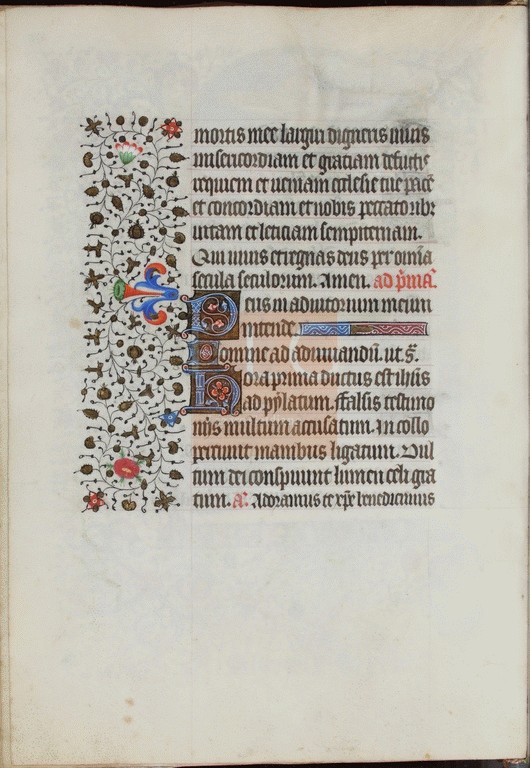 mortis mee largiri digneris uiuis
misericordiam et gratiam defuctis
requiem et ueniam ecclesie tue pacē
et concordiam et nobis peccatoribz
uitam et leticiam sempiternam.
Qui uiuis et regnas deus per omīa
secula seculorum. Amen. ad p̄mā.
Deus in adiutorium meum
intende.
Domine ad adiuuandū. ut. s̄.
Hora prima ductus est ihūs
ad pylatum. ffalsis testimo
nijs multum accusatum. In collo
percuciūt manibus ligatum. Vul
tum dei conspuunt lumen celi gra
tum. a. Adoramus te xp̄e benedicimus